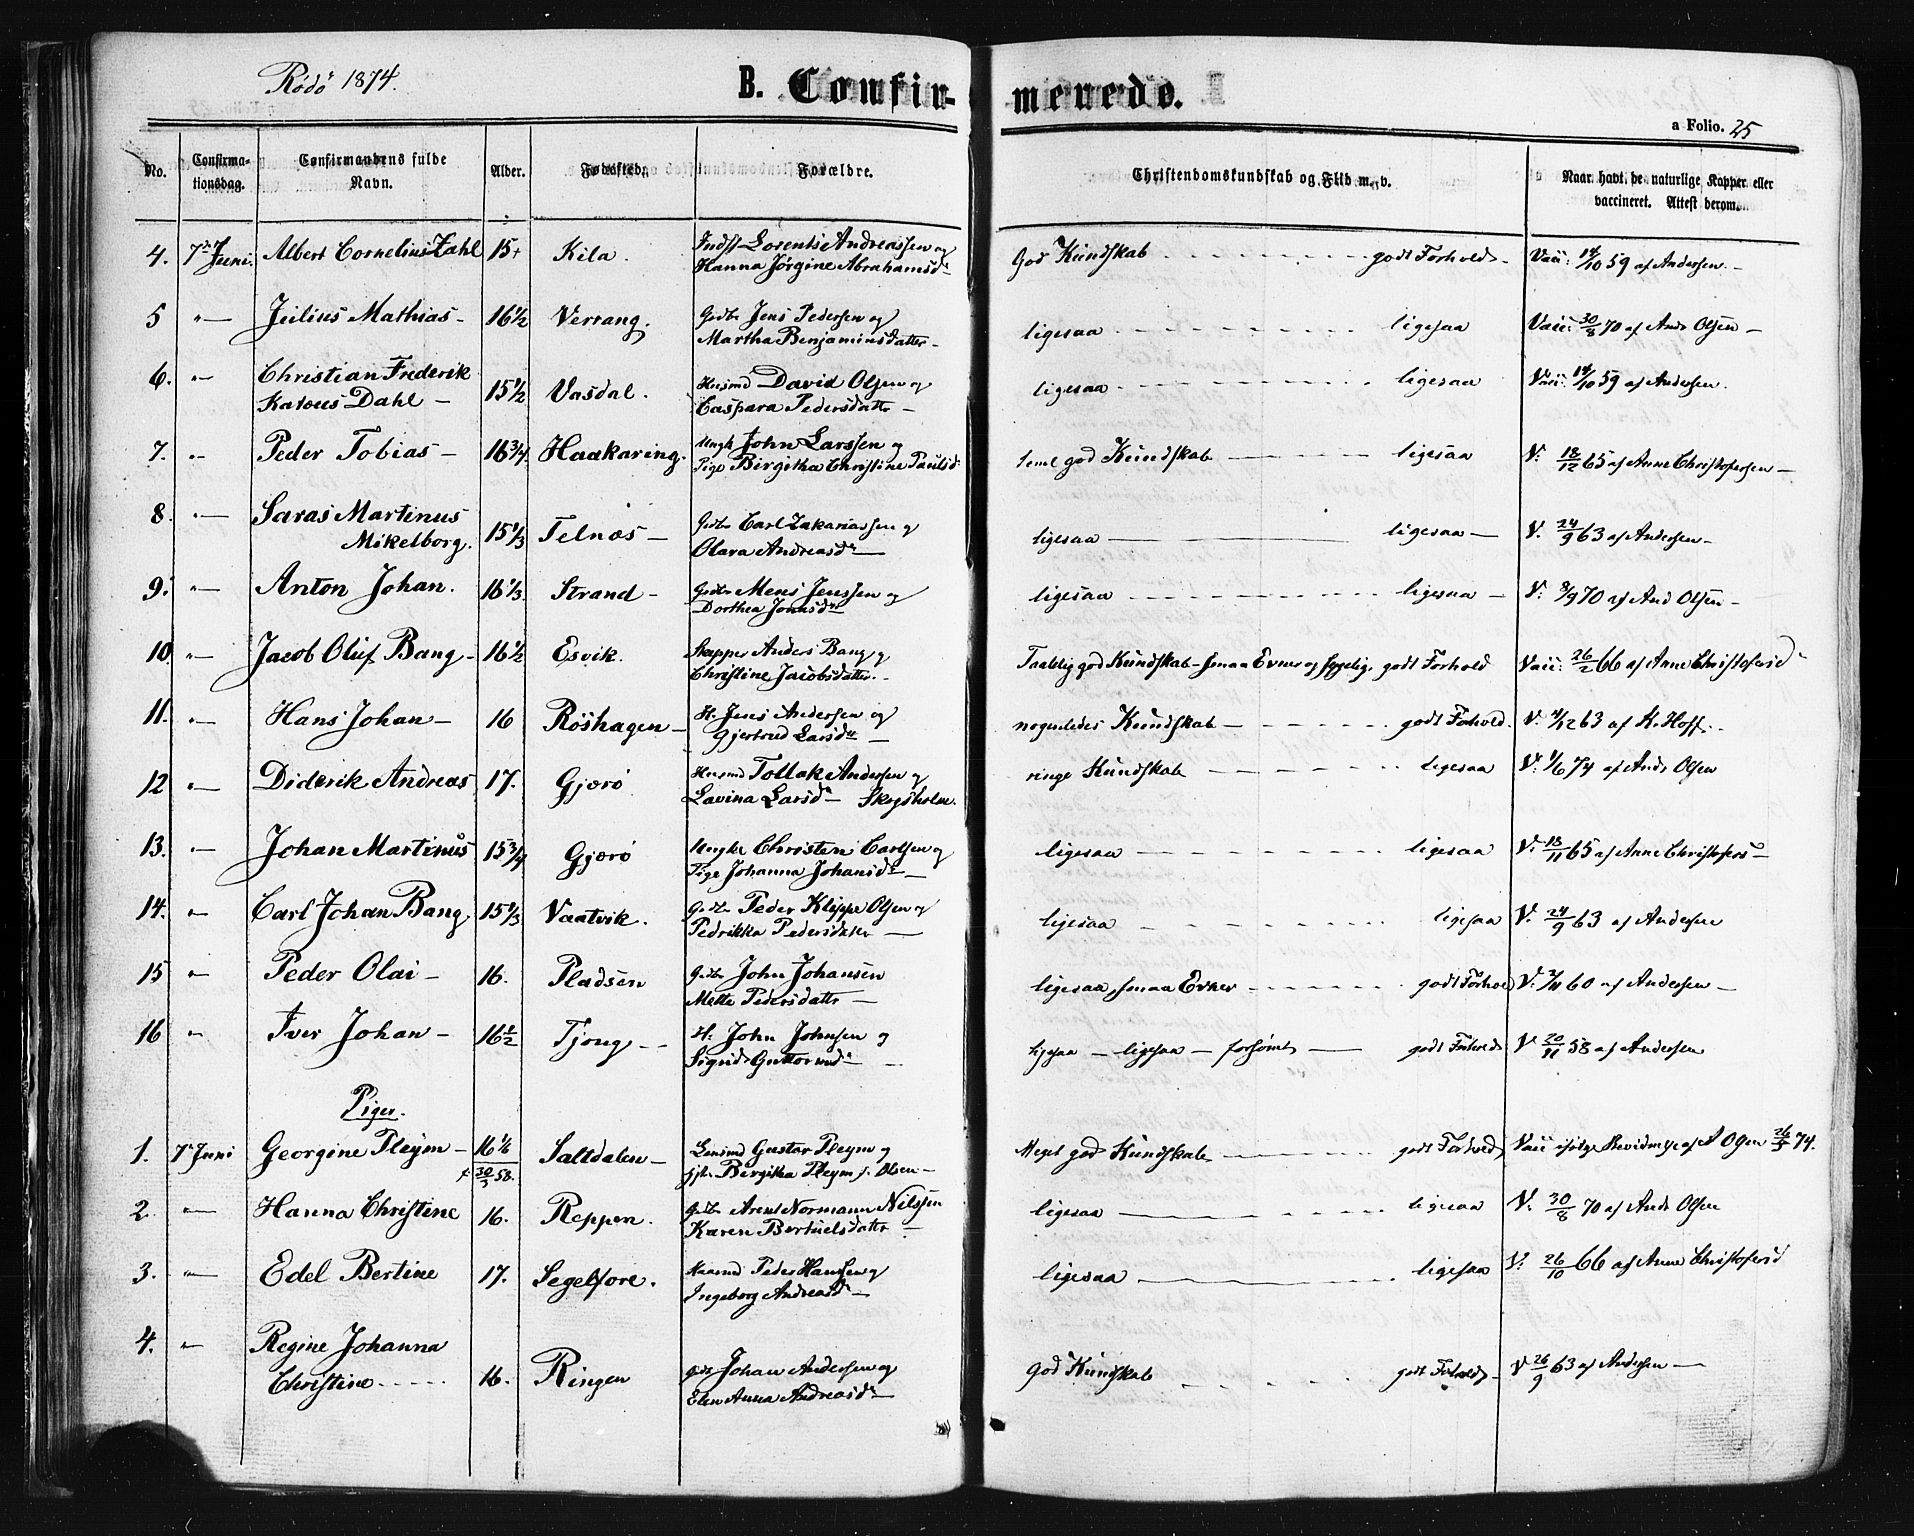 Rödö 1874.
B. Confir-
merede.
a Folio. 25
No.
Confirma-
tionsdag.
Confirmandens fulde
Navn.
Alder.
Fødested.
Forældre.
Christendomskundskab og Flid m. v.
Naar havt de naturlige Kopper eller
vaccineret. Attest derom.
4. 7de Juni. Albert Cornelius Zahl 15+ Kila. Indst Lorents Andreassen og God Kundskab godt Forhold Vacc: 14/10 59 af Andersen.
Hanna Jørgine Abrahamsd
5 " Julius Mathias 16 1/2 Verrang. Gbr Jens Pedersen og ligesaa ligesaa Vacc: 30/8 70 af And Olsen
Martha Benjaminsdatter
6. " Christian Frederik Husmd David Olsen og
Dahl 15 1/2 Vasdal. Caspara Pedersdatter ligesaa ligesaa Vacc: 14/10 59 af Andersen.
7. " Peder Tobias 16 3/4 Haakaring. Ungk John Larssen og teml god Kundskab ligesaa V: 18/12 65 af Anne Christofersen
Pige Birgitha Christine Paulsd
8. " Saras Martinus Carl Zakariassen og
Mikelborg. 15 1/3 Telnæs Olava Andreasd ligesaa ligesaa V. 24/9 63 af Andersen
9. " Anton Johan. 16 1/3 Strand Mens Jenssen og ligesaa ligesaa V: 8/9 70 af And Olsen
Dorthea Jonasd
10. " Jacob Oluf Bang 16 1/2 Esvik. Anders Bang og Taalelig god Kundskab smaa Evner og sygelig godt Forhold Vacc: 26/2 66 af Anne Christofersd
Christine Jacobsdatter.
11. " Hans Johan 16 Röshagen H. Jens Andersen og nogenledes Kundskab godt Forhold. V. 4/12 63 af K. Hoff.
Gjertrud Larsd
12 " Diderik Andreas 17. Gjerö Husmd Tollak Andersen og ringe Kundskab ligesaa V: 1/6 74 af And Olsen
Lavina Larsd Skogsholm.
13. " Johan Martinus 15 3/4 Gjerö Ungk Christen Carlsen og ligesaa ligesaa V: 18/11 65 af Anne Christofers
Pige Johanna Johansd
14. " Carl Johan Bang 15 2/3 Vaatvik. Peder Klippe Olsen og ligesaa ligesaa V. 24/9 63 af Andersen
Pedrikka Pedersdatter
15 " Peder Olai 16. Pladsen John Johansen ligesaa, smaa Evner godt Forhold V: 2/11 60 af Andersen
Mette Pedersdatter
16 " Iver Johan 16 1/2 Tjong H: John Johnsen og ligesaa ligesaa forsømt godt Forhold V 20/11 58 af Andersen
Sigrid Guttormsd
Piger.
1. 7de Juni Georgine Pleym 16 1/6 Saltdalen Lensmd Gustav Pleym og Meget god Kundskab godt Forhold Vacc ifølge Bevidnelse af A Olsen 26/5 74.
f 30/3 58. Birgitha Pleym f. Olsen
2. " Hanna Christine 16. Reppen. Arent Normann Nilssen ligesaa ligesaa V: 30/8 70 af And Olsen
Karen Bertuelsdatter
3. " Edel Bertine 17. Segelfore. Peder Hanssen og ligesaa ligesaa V: 26/10 66 af Anne Christofersd
Ingeborg Andreasd
4. " Regine Johanna
Christine 16. Ringen Johan Andersen og God Kundskab godt Forhold V 26/9 63 af Andersen
Elen Anna Andreasd